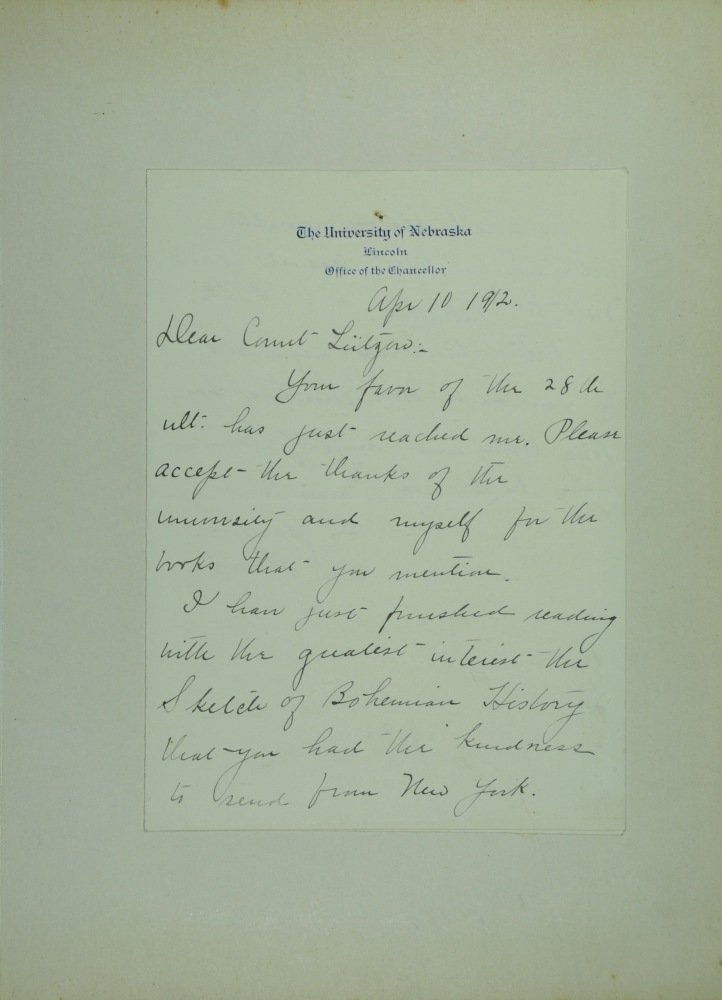 The University of Nebraska
Lincoln
Office of the Chancellor
Apr 10 1912.
Dear Count Lützow:-
Your favor of the 28th
ult. has just reached me. Please
accept the thanks of the
university and myself for the
books that you mention.
I have just finished reading
with the greatest interest the
Sketch of Bohemian History
that you had the kindness
to send from New York.